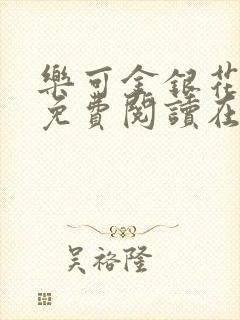 樂可金銀花
免費閱讀在
吴裕隆